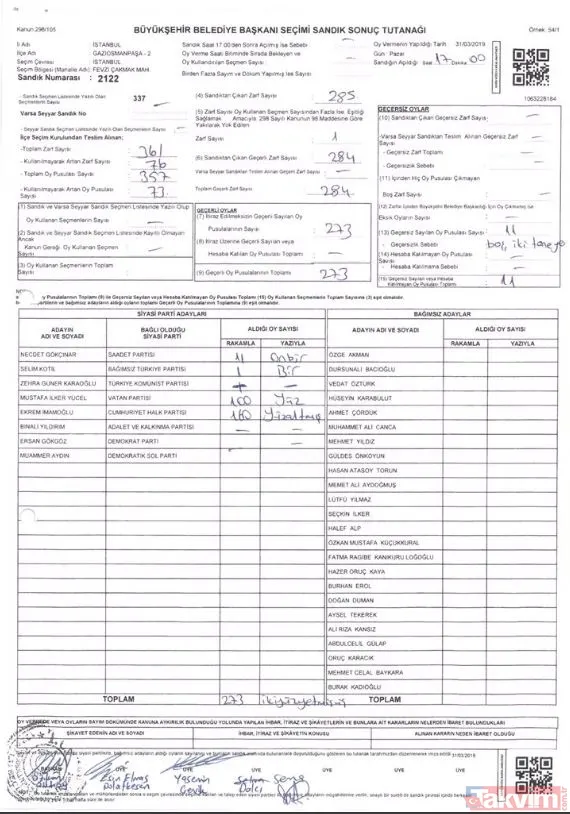 Kanun 298/105
BÜYÜKŞEHİR BELEDİYE BAŞKANI SEÇİMİ SANDIK SONUÇ TUTANAĞI
Örnek: 54/1
İl Adı İSTANBUL
İlçe Adı GAZİOSMANPAŞA - 2
Seçim Çevresi İSTANBUL
Seçim Bölgesi (Mahalle Adı) FEVZİ ÇAKMAK MAH.
Sandık Numarası : 2122
Sandık Saat 17.00'den Sonra Açılmış İse Sebebi
Oy Verme Saati Bitiminde Sırada Bekleyen ve
Oy Kullandırılan Seçmen Sayısı
Birden Fazla Sayım ve Döküm Yapılmış İse Sayısı
Oy Vermenin Yapıldığı Tarih 31/03/2019
Gün: Pazar
Sandığın Açıldığı Saat 17 Dakika 00
1063228184
- Sandık Seçmen Listesinde Yazılı Olan Seçmenlerin Sayısı 337
Varsa Seyyar Sandık No
- Seyyar Sandık Seçmen Listesinde Yazılı Olan Seçmenlerin Sayısı
İlçe Seçim Kurulundan Teslim Alınan:
-Toplam Zarf Sayısı 361
-Kullanılmayarak Artan Zarf Sayısı 76
-Toplam Oy Pusulası Sayısı 357
-Kullanılmayarak Artan Oy Pusulası Sayısı 73
(1) Sandık ve Varsa Seyyar Sandık Seçmen Listesinde Yazılı Olup
Oy Kullanan Seçmenlerin Sayısı
(2) Sandık ve Seyyar Sandık Seçmen Listesinde Kayıtlı Olmayan Ancak
Kanun Gereği Oy Kullanan Seçmen Sayısı
(3) Oy Kullanan Seçmenlerin Toplam Sayısı
(4) Sandıktan Çıkan Zarf Sayısı 285
(5) Zarf Sayısı Oy Kullanan Seçmen Sayısından Fazla İse, Eşitliği
Sağlamak Amacıyla 298 Sayılı Kanunun 98 Maddesine Göre
Yakılarak Yok Edilen
Zarf Sayısı 1
(6) Sandıktan Çıkan Geçerli Zarf Sayısı 284
Varsa Seyyar Sandıktan Teslim Alınan Geçerli Zarf Sayısı
Toplam Geçerli Zarf Sayısı 284
GEÇERLİ OYLAR
(7) İtiraz Edilmeksizin Geçerli Sayılan Oy
Pusulalarının Sayısı 273
(8) İtiraz Üzerine Geçerli Sayılan veya
Hesaba Katılan Oy Pusulası Sayısı
(9) Geçerli Oy Pusulalarının Toplamı 273
GEÇERSİZ OYLAR
(10) Sandıktan Çıkan Geçersiz Zarf Sayısı
-Varsa Seyyar Sandıktan Teslim Alınan Geçersiz Zarf Sayısı
- Geçersiz Zarf Toplamı
- Geçersizlik Sebebi
(11) İçinden Hiç Oy Pusulası Çıkmayan
Boş Zarf Sayısı
(12) Zarfın İçinden Büyükşehir Belediye Başkanlığı İçin Oy Çıkmamış ise
Eksik Oyların Sayısı
(13) Geçersiz Sayılan Oy Pusulası Sayısı 11
- Geçersizlik Sebebi boş, iki tane
(14) Hesaba Katılmayan Oy Pusulası Sayısı
- Hesaba Katılmama Sebebi
(15) Geçersiz Sayılan veya Hesaba Katılmayan Oy Pusulası Toplamı 11
SİYASİ PARTİ ADAYLARI
BAĞIMSIZ ADAYLAR
ADAYIN ADI VE SOYADI
BAĞLI OLDUĞU SİYASİ PARTİ
ALDIĞI OY SAYISI
RAKAMLA YAZIYLA
ADAYIN ADI VE SOYADI
ALDIĞI OY SAYISI
RAKAMLA YAZIYLA
NECDET GÖKÇINAR SAADET PARTİSİ 11 Onbir
SELİM KOTİL BAĞIMSIZ TÜRKİYE PARTİSİ 1 Bir
ZEHRA GÜNER KARAOĞLU TÜRKİYE KOMÜNİST PARTİSİ
MUSTAFA İLKER YÜCEL VATAN PARTİSİ 100 Yüz
EKREM İMAMOĞLU CUMHURİYET HALK PARTİSİ 160 Yüzaltmış
BİNALİ YILDIRIM ADALET VE KALKINMA PARTİSİ
ERSAN GÖKGÖZ DEMOKRAT PARTİ
MUAMMER AYDIN DEMOKRATİK SOL PARTİ
ÖZGE AKMAN
DURSUNALİ BACIOĞLU
VEDAT ÖZTÜRK
HÜSEYİN KARABULUT
AHMET ÇORDUK
MUHAMMET ALİ CANCA
MEHMET YILDIZ
GÜLDES ÖNKOYUN
HASAN ATASOY TORUN
MEMET ALİ AYDOĞMUŞ
LÜTFÜ YILMAZ
SEÇKİN İLKER
HALEF ALP
ÖZKAN MUSTAFA KÜÇÜKKURAL
FATMA RAGİBE KANIKURU LOĞOĞLU
HAZER ORUÇ KAYA
BURHAN EROL
DOĞAN DUMAN
AYSEL TEKEREK
ALİ RIZA KANSIZ
ABDULCELİL GÜLAP
ORUÇ KARACIK
MEHMET CELAL BAYKARA
BURAK KADIOĞLU
TOPLAM 273 ikiyüzyetmişüç TOPLAM
OY VERMEDE VEYA OYLARIN SAYIM DÖKÜMÜNDE KANUNA AYKIRILIK BULUNDUĞU YOLUNDA YAPILAN İHBAR, İTİRAZ VE ŞİKAYETLERİN VE BUNLARA AİT KARARLARIN NELERDEN İBARET BULUNDUKLARI
ŞİKAYET EDENİN ADI VE SOYADI
İHBAR, İTİRAZ VE ŞİKAYETİN KONUSU
ALINAN KARARIN NEDEN İBARET OLDUĞU
31/03/2019
BAŞKAN ÜYE ÜYE ÜYE ÜYE ÜYE ÜYE
takvim.com.tr